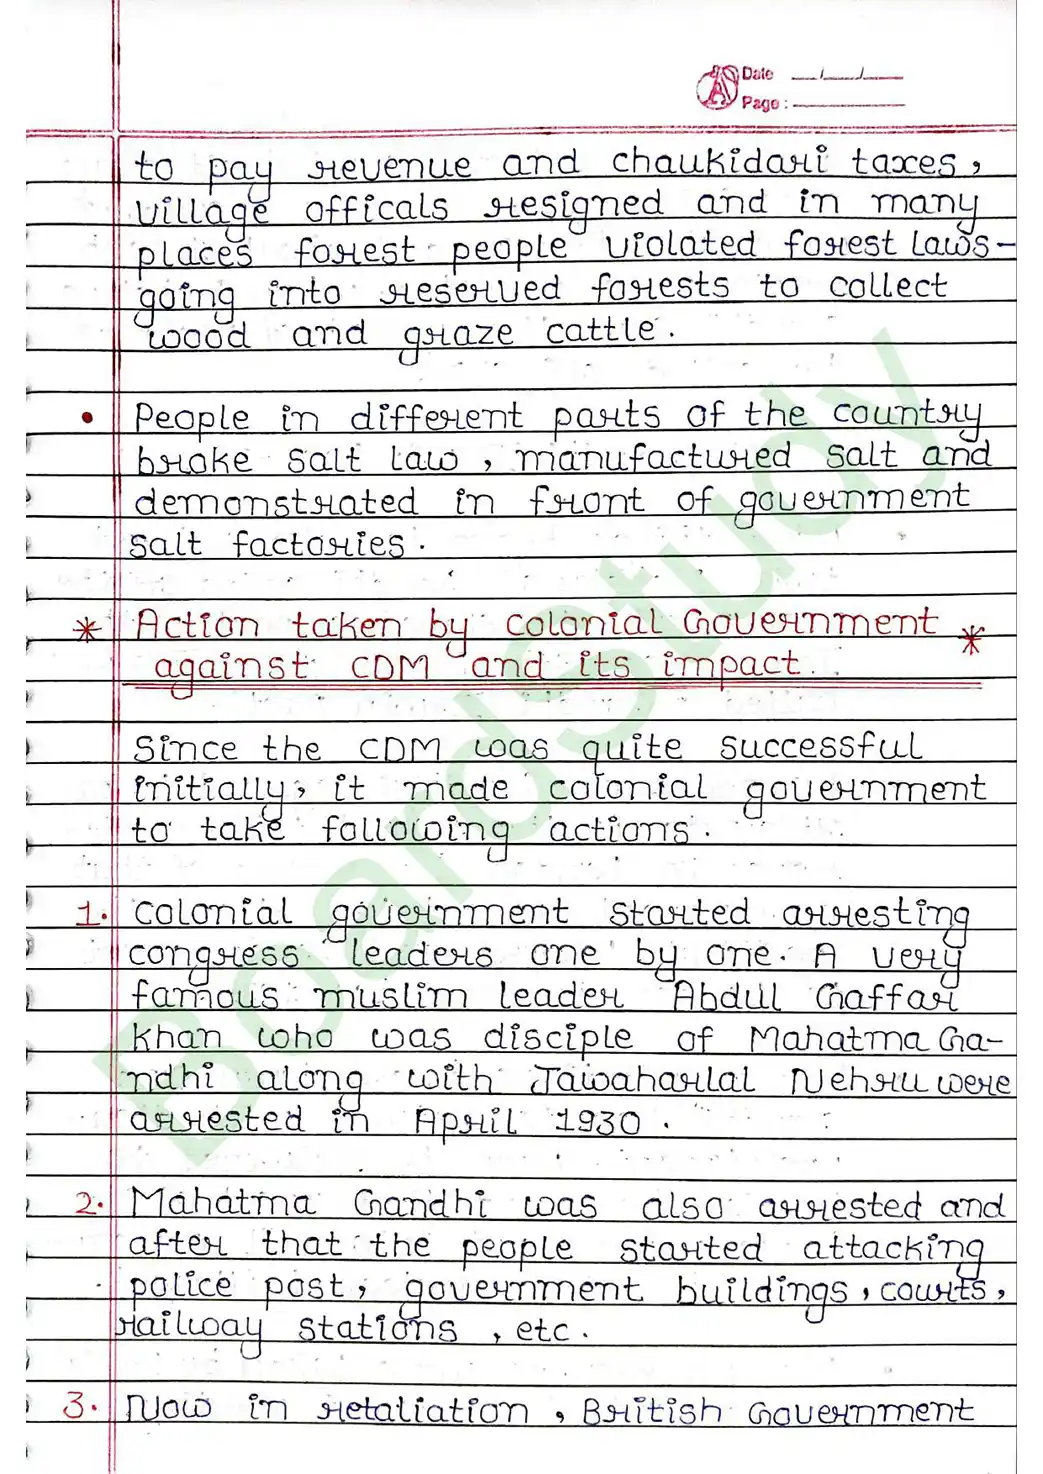 Date __/__/__
Page :
to pay revenue and chaukidari taxes,
village officals resigned and in many
places forest people violated forest laws-
going into reserved forests to collect
wood and graze cattle.
• People in different parts of the country
broke salt law, manufactured salt and
demonstrated in front of government
salt factories.
* Action taken by colonial Government *
against CDM and its impact.
Since the CDM was quite successful
initially, it made colonial government
to take following actions.
1. colonial government started arresting
congress leaders one by one. A very
famous muslim leader Abdul Gaffar
khan who was disciple of Mahatma Ga-
ndhi along with Jawaharlal Nehru were
arrested in April 1930.
2. Mahatma Gandhi was also arrested and
after that the people started attacking
police post, government buildings, courts,
railway stations, etc.
3. Now in retaliation, British Government
BoardStudy